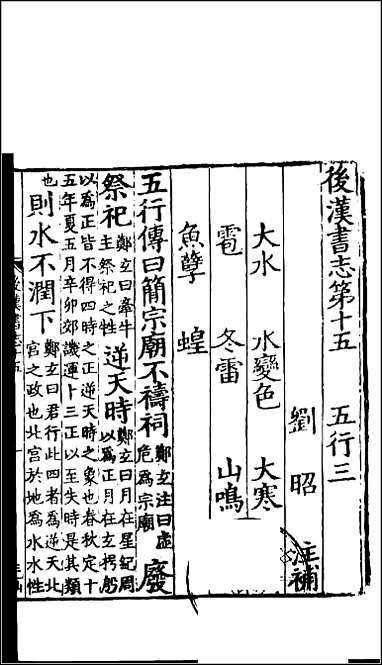 後漢書志第十五　五行三
劉昭　注補
大水　水變色　大寒
雹　冬雷　山鳴
魚孽　蝗
五行傳曰簡宗廟不禱祠鄭玄注曰虛危爲宗廟廢
祭祀鄭玄曰牽牛主祭祀之牲逆天時鄭玄曰月在星紀周以爲正月在玄枵殷
以爲正皆不得四時之正逆天時之象也春秋定十
五年夏五月辛卯郊譏運卜三正以至失時是其類
也則水不潤下鄭玄曰君行此四者爲逆天北宮之政也北宮於地爲水水性